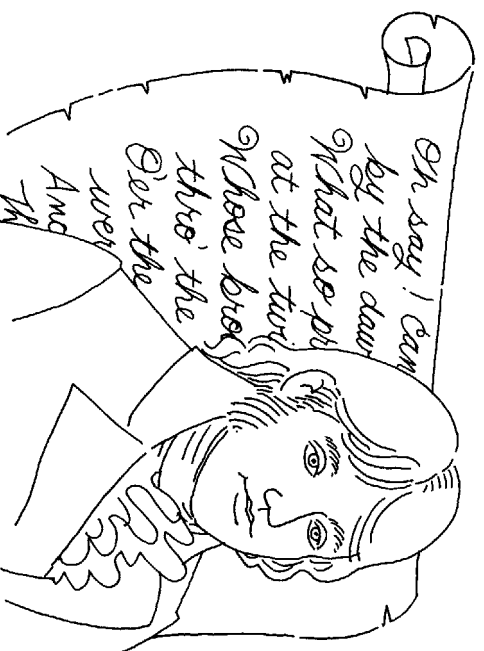 Oh say! Can
by the daw
What so pr
at the twi
Whose broa
thro' the
O'er the
wer
And
th